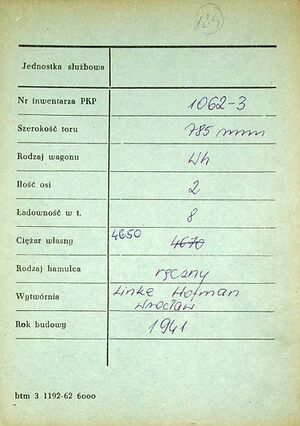 124
Jednostka służbowa
Nr inwentarza PKP 1062-3
Szerokość toru 785 mm
Rodzaj wagonu Wh
Ilość osi 2
Ładowność w t. 8
Ciężar własny 4650 4670
Rodzaj hamulca ręczny
Wytwórnia Linke Hofman
Wrocław
Rok budowy 1941
btm 3 1192-62 6000